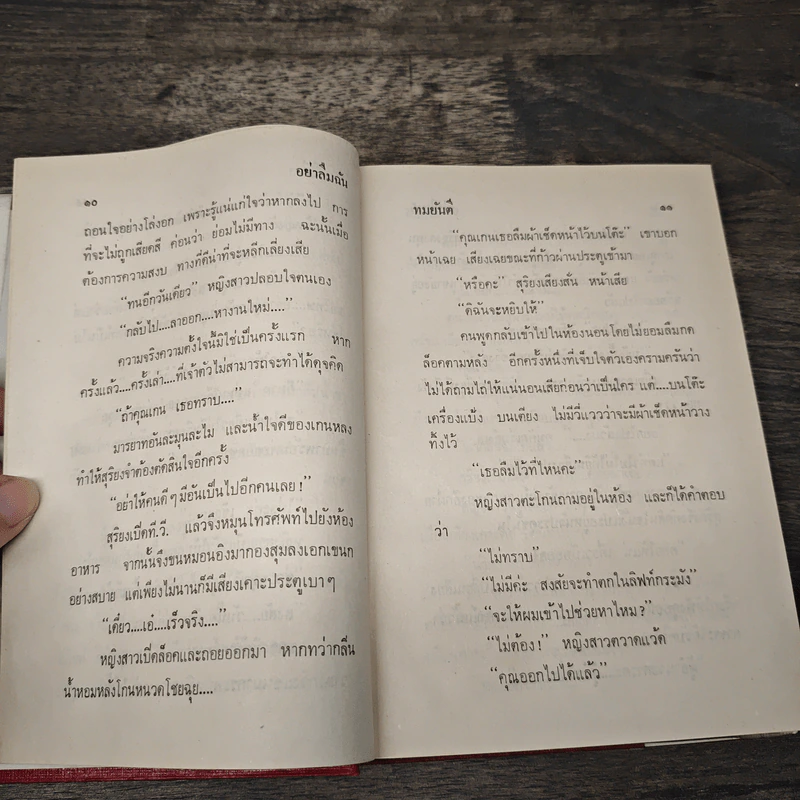 ๑๐
อย่าลืมฉัน
ถอนใจอย่างโล่งอก เพราะรู้แน่แก่ใจว่าหากลงไป การ
ที่จะไม่ถูกเสียดสี ค่อนว่า ย่อมไม่มีทาง ฉะนั้นเมื่อ
ต้องการความสงบ ทางที่ดีน่าที่จะหลีกเลี่ยงเสีย
“ทนอีกวันเดียว” หญิงสาวปลอบใจตนเอง
“กลับไป....ลาออก....หางานใหม่....”
ความจริงความตั้งใจนี้มิใช่เป็นครั้งแรก หาก
ครั้งแล้ว....ครั้งเล่า....ที่เจ้าตัวไม่สามารถจะทำได้ดุจคิด
“ถ้าคุณเกน เธอทราบ....”
มารยาทอันละมุนละไม และน้ำใจดีของเกนหลง
ทำให้สุริยงจำต้องตัดสินใจอีกครั้ง
“อย่าให้คนดี ๆ มีอันเป็นไปอีกคนเลย !”
สุริยงเปิดที.วี. แล้วจึงหมุนโทรศัพท์ไปยังห้อง
อาหาร จากนั้นจึงขนหมอนอิงมากองสุมลงเอกเขนก
อย่างสบาย แต่เพียงไม่นานก็มีเสียงเคาะประตูเบา ๆ
“เดี๋ยว....เอ๋....เร็วจริง....”
หญิงสาวเปิดล็อคและถอยออกมา หากทว่ากลิ่น
น้ำหอมหลังโกนหนวดโชยฉุย....
ทมยันตี
๑๑
“คุณเกนเธอลืมผ้าเช็ดหน้าไว้บนโต๊ะ” เขาบอก
หน้าเฉย เสียงเฉยขณะที่ก้าวผ่านประตูเข้ามา
“หรือคะ” สุริยงเสียงสั่น หน้าเสีย
“ดิฉันจะหยิบให้”
คนพูดกลับเข้าไปในห้องนอนโดยไม่ยอมลืมกด
ล็อคตามหลัง อีกครั้งหนึ่งที่เจ็บใจตัวเองครามครันว่า
ไม่ได้ถามไถ่ให้แน่นอนเสียก่อนว่าเป็นใคร แต่....บนโต๊ะ
เครื่องแป้ง บนเตียง ไม่มีวี่แววว่าจะมีผ้าเช็ดหน้าวาง
ทิ้งไว้
“เธอลืมไว้ที่ไหนคะ”
หญิงสาวตะโกนถามอยู่ในห้อง และก็ได้คำตอบ
ว่า
“ไม่ทราบ”
“ไม่มีค่ะ สงสัยจะทำตกในลิฟท์กระมัง”
“จะให้ผมเข้าไปช่วยหาไหม ?”
“ไม่ต้อง !” หญิงสาวตวาดแว้ด
“คุณออกไปได้แล้ว”